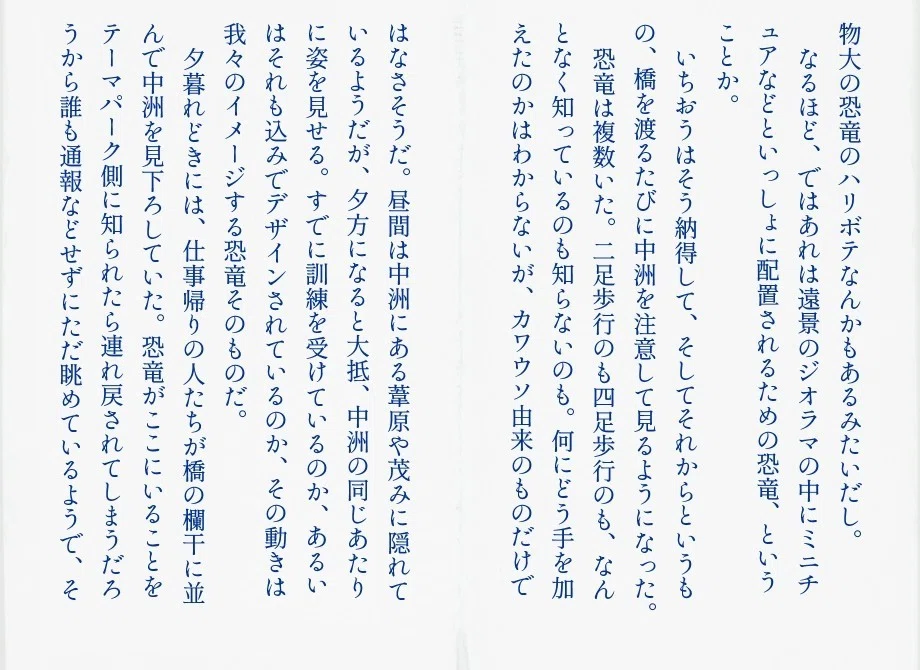 物大の恐竜のハリボテなんかもあるみたいだし。
　なるほど、ではあれは遠景のジオラマの中にミニチ
ュアなどといっしょに配置されるための恐竜、という
ことか。
　いちおうはそう納得して、そしてそれからというも
の、橋を渡るたびに中洲を注意して見るようになった。
　恐竜は複数いた。二足歩行のも四足歩行のも、なん
となく知っているのも知らないのも。何にどう手を加
えたのかはわからないが、カワウソ由来のものだけで
はなさそうだ。昼間は中洲にある葦原や茂みに隠れて
いるようだが、夕方になると大抵、中洲の同じあたり
に姿を見せる。すでに訓練を受けているのか、あるい
はそれも込みでデザインされているのか、その動きは
我々のイメージする恐竜そのものだ。
　夕暮れどきには、仕事帰りの人たちが橋の欄干に並
んで中洲を見下ろしていた。恐竜がここにいることを
テーマパーク側に知られたら連れ戻されてしまうだろ
うから誰も通報などせずにただ眺めているようで、そ